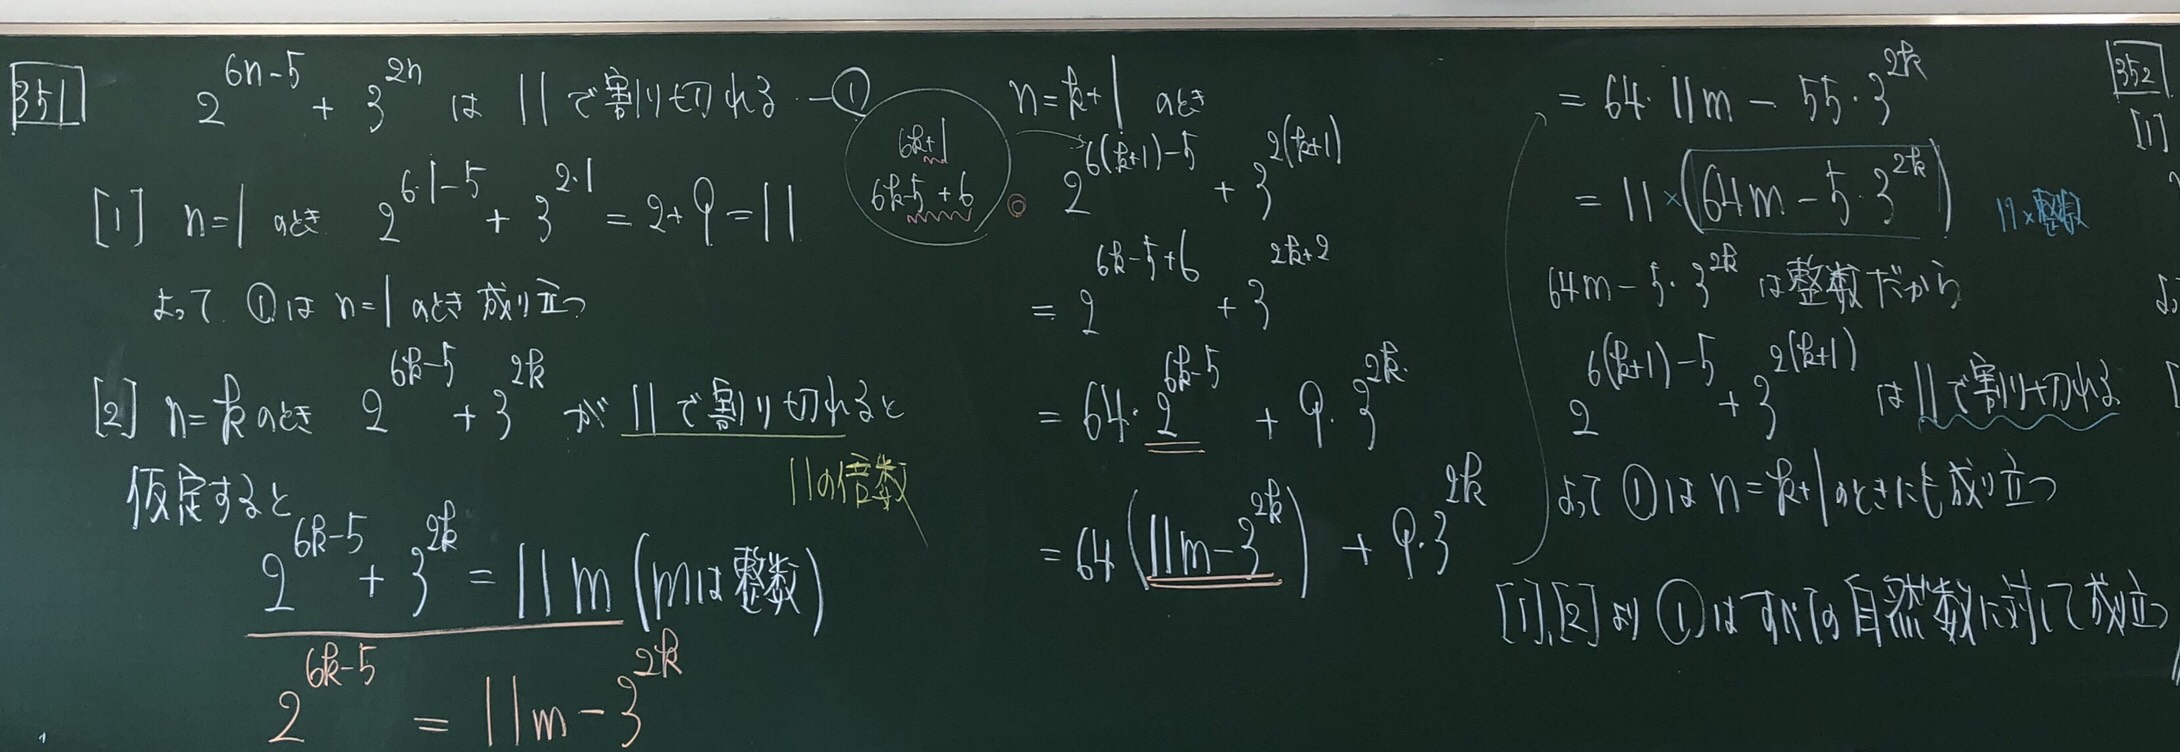 351 2^{6n-5} + 3^{2n} は 11で割り切れる —①
[1] n=1 のとき 2^{6・1-5} + 3^{2・1} = 2+9=11
よって ①は n=1 のとき 成り立つ
[2] n=k のとき 2^{6k-5} + 3^{2k} が 11で割り切れると
11の倍数
仮定すると
2^{6k-5} + 3^{2k} = 11m (mは整数)
2^{6k-5} = 11m - 3^{2k}
6k+1
6k-5+6
n=k+1 のとき
2^{6(k+1)-5} + 3^{2(k+1)}
= 2^{6k-5+6} + 3^{2k+2}
= 64・2^{6k-5} + 9・3^{2k}
= 64(11m-3^{2k}) + 9・3^{2k}
= 64・11m - 55・3^{2k}
= 11×(64m-5・3^{2k})
11×整数
64m-5・3^{2k} は整数だから
2^{6(k+1)-5} + 3^{2(k+1)} は11で割り切れる
よって ①は n=k+1のときにも成り立つ
[1],[2]より ①はすべての自然数に対して成り立つ
352
[1]